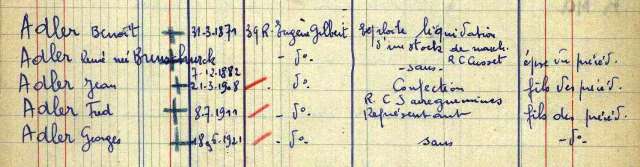 Adler Benoît + 31-3-1871 39 R. Eugène Gilbert Exploite liquidation
d'un stock de march.
R C Cusset
Adler René née Brunschwick 7-12-1882 - d°. - sans - épse du précéd.
Adler Jean + 21-3-1908 - d°. Confection fils des précéd.
R. C Sarreguemines
Adler Fred + 8.7.1911 - d°. Représentant fils des précéd.
Adler Georges + 18.6.1921 - d°. sans - d°.